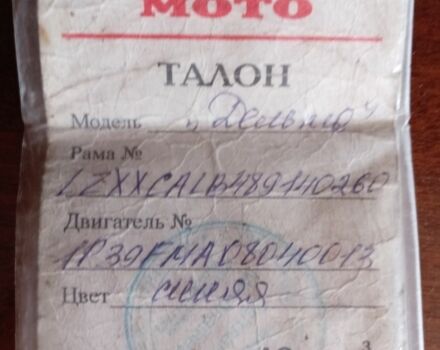 МОТО
ТАЛОН
Модель „Дельта"
Рама №
LZXXCALB489140260
Двигатель №
1P39FMA08040013
Цвет синяя
3